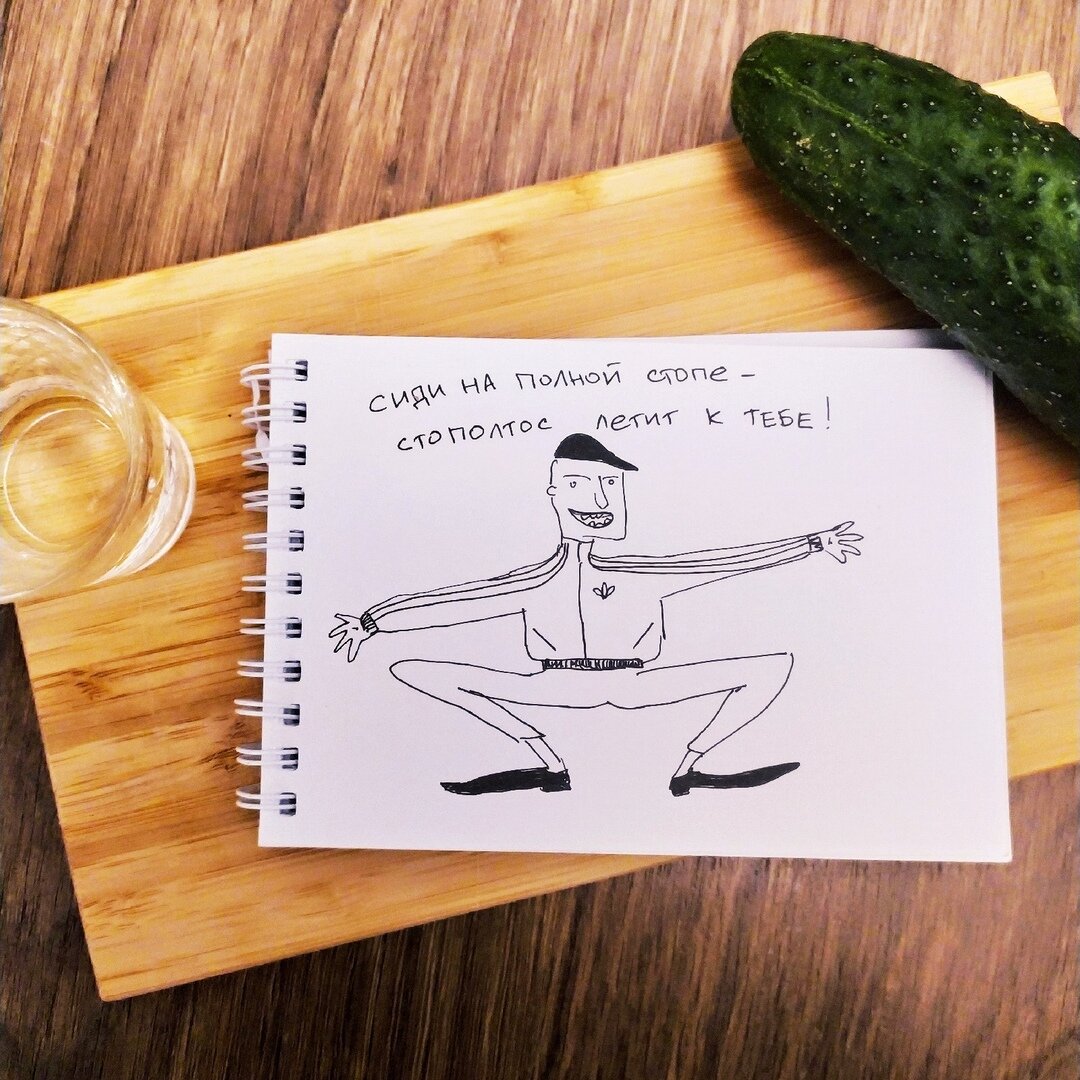 СИДИ НА ПОЛНОЙ СТОПЕ –
СТОПОЛТОС ЛЕТИТ К ТЕБЕ!